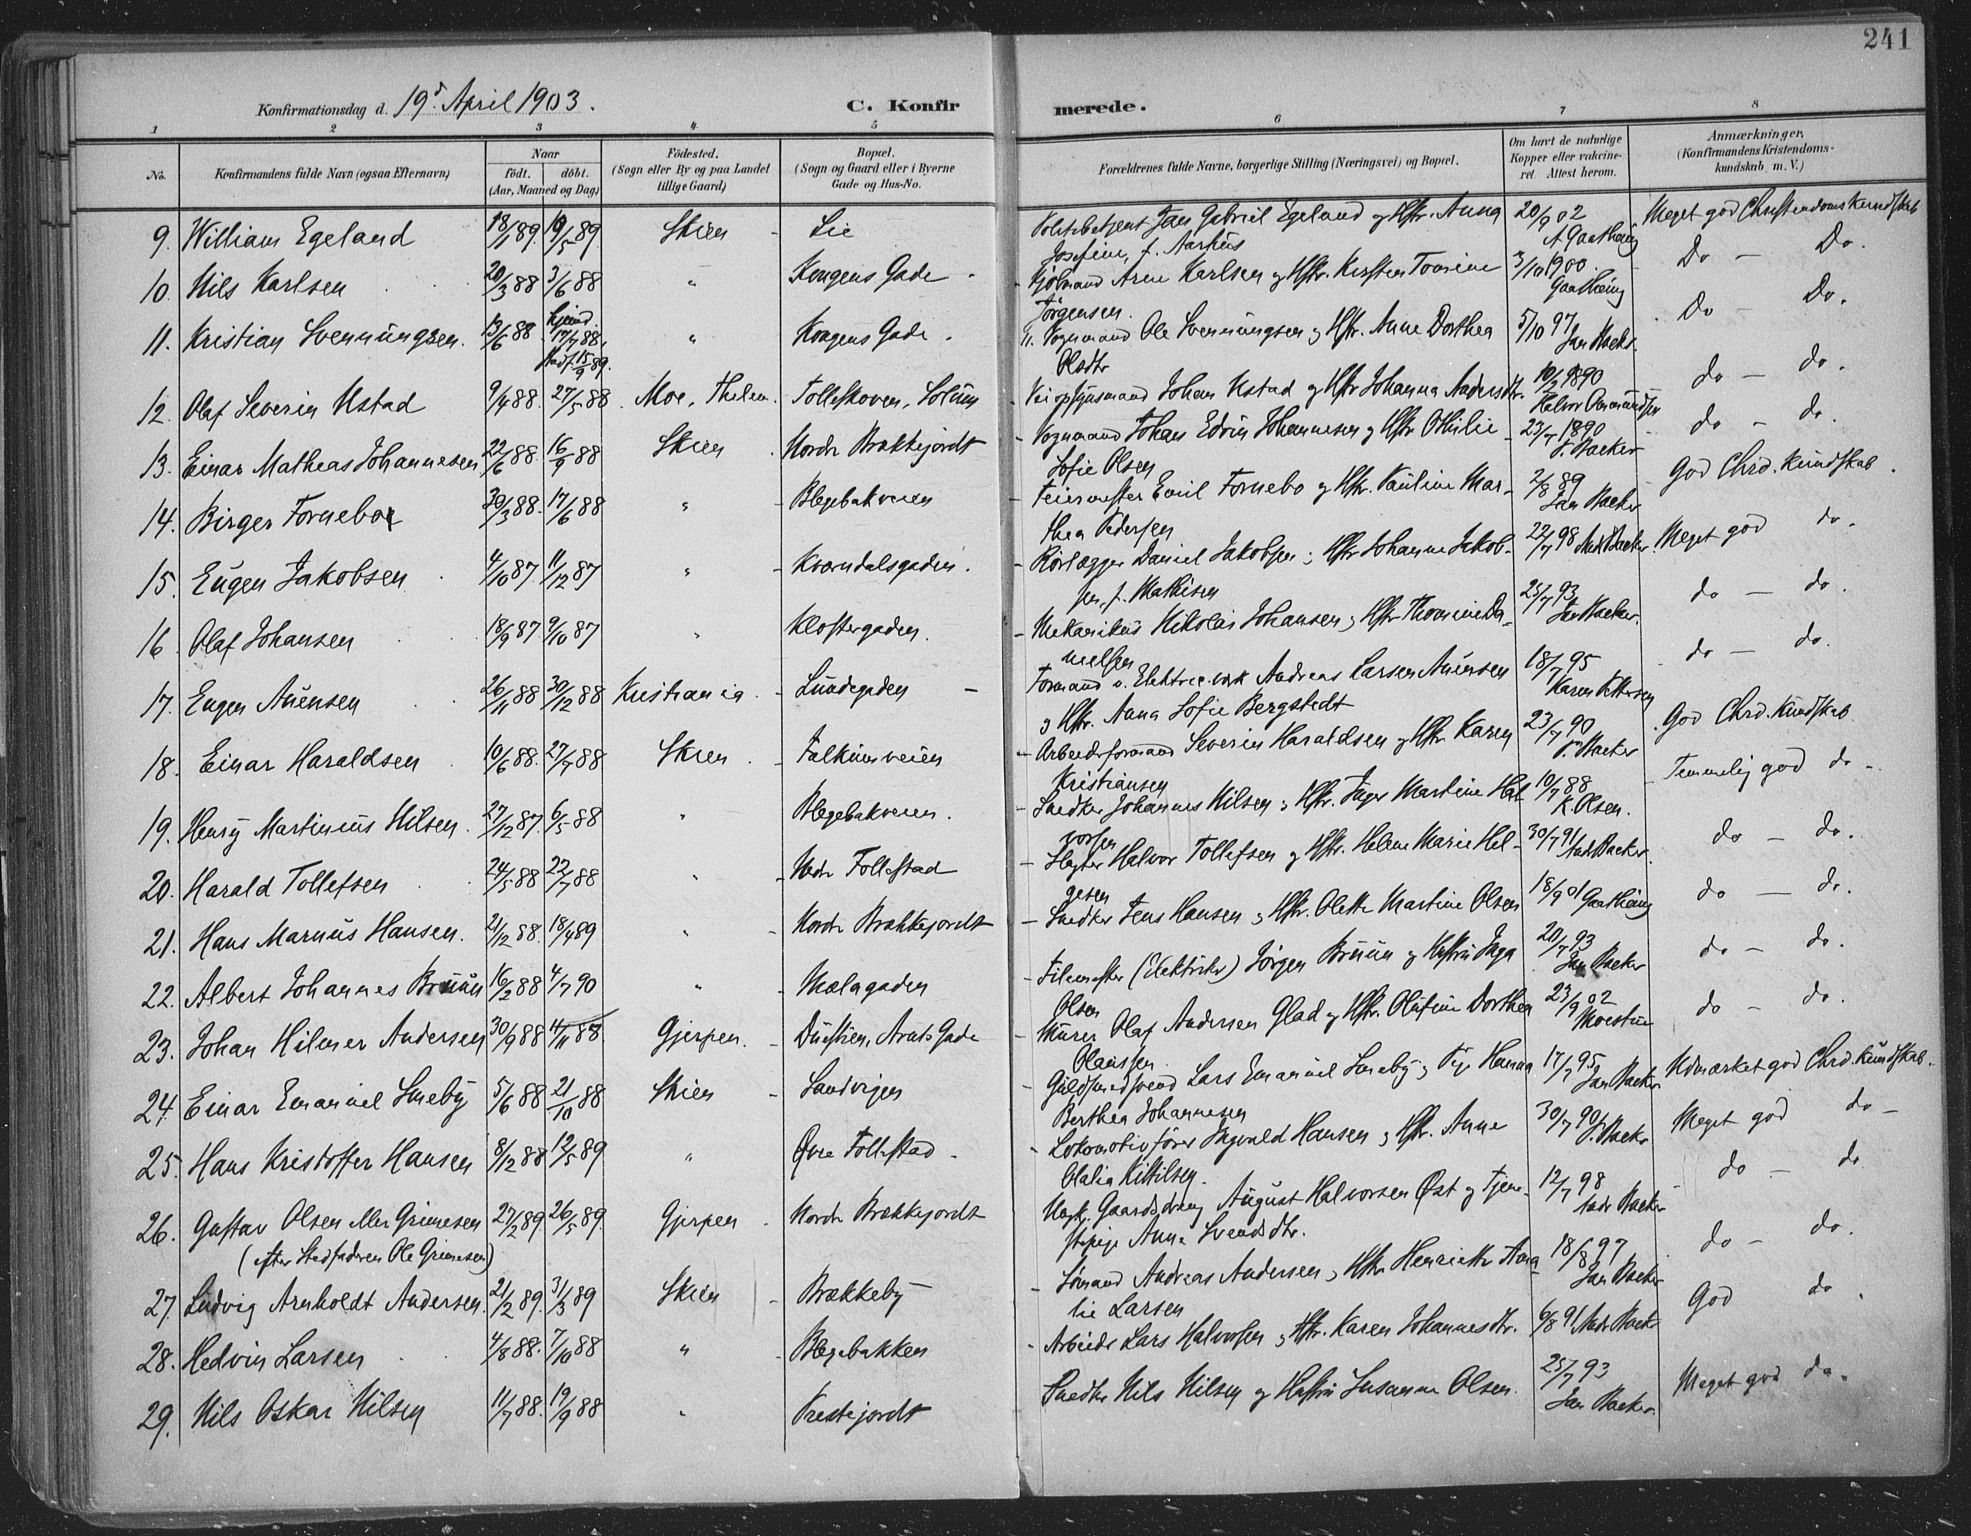 241
Konfirmationsdag d. 19d April 1903.
C. Konfirmerede.
1 2 3 4 5 6 7 8
No.
Konfirmandens fulde Navn (ogsaa Efternavn)
Naar
födt. döbt.
(Aar, Maaned og Dag)
Födested.
(Sogn eller By og paa Landet
tillige Gaard)
Bopæl.
(Sogn og Gaard eller i Byerne
Gade og Hus-No.
Forældrenes fulde Navne, borgerlige Stilling (Næringsvei) og Bopæl.
Om havt de naturlige
Kopper eller vakcine-
ret. Attest herom.
Anmærkninger.
(Konfirmandens Kristendoms-
kundskab m. V.)
9. William Egeland 18/1 89. 19/5 89 Skien - Lie Politibetjent Jan Gabriel Egeland og Hstr. Anna 20/9 02 Meget god Christendomskundskab
Josefine, f. Aarhus
10. Nils Karlsen 20/3 88 3/6 88 " Kongens Gade - Kjølmand Aren Karlsen og Hstr. Kirsten Tomine 3/10 1900 Do - Do.
Jörgensen.
11. Kristian Svennungsen. 13/6 88 hjemd 17/7 88. Stadf. 15/9 89. " Kongens Gade. Vognmand Ole Svennungsen og Hstr. Anne Dorthea 5/10 97 Do - Do.
Olsdtr
12. Olaf Severin Ustad 9/4 88. 27/5 88 Moe, Thelem. Follestoven, Solum Veiopsynsmand Johan Ustad og Hstr Johanna Andersdtr. 1890 do - do.
13. Einar Matheas Johannesen 22/6 88 16/9 88 Skien Nordr Brækkejordt Vognmand Johan Edvin Johannesen og Hstr Othilie 23/7 1890 J. Backer do - do.
Sofie Olsen
14. Birger Fornebo 30/3 88. 17/6 88 " Blegebakveien Feiermester Emil Fornebo og Hstr. Pauline Mar- 2/8 89 Jan Backer God Chrd. kundskab.
thea Pedersen
15. Eugen Jakobsen 4/10 87 11/12 87 " Kværndalsgaden. Rörlægger Daniel Jakobsen og Hstr Johanne Jakob- 22/7 98 Andr Backer. Meget god do.
sen, f. Mathisen
16. Olaf Johansen 18/9 87 9/10 87 " Klostergaden. Mekanikus Nikolai Johansen og Hstr Thomine Da- 25/7 93 Jan Backer. do - do.
nielsen
17. Eugen Auensen 26/11 88 30/12 88 Kristiania Lundegaden - Formand v. Elektric. værk Andreas Larsen Auensen 18/7 95 Karen Pettersen do - do.
og Hstr. Anna Sofie Bergstedt
18. Einar Haraldsen 10/6 88. 27/7 88 Skien. Falkumveien Arbeidsformand Severin Haraldsen og Hstr. Karen 23/7 90 J. Backer God Chrd. kundskab
Kristiansen
19. Henry Martinius Nilsen. 27/12 87 6/5 88 " Blegebakveien. Snedker Johannes Nilsen og Hstr. Inger Martine Hal- 10/7 88 K. Olsen. Temmelig god do -
vorsen
20. Harald Tollefsen 24/5 88 22/7 88 " Nedr Follestad Slagter Halvor Tollefsen og Hstr. Helene Marie Hel- 30/7 91 Andr Backer. do - do.
gesen
21. Hans Marnus Hansen. 21/12 88. 18/4 89 " Nordr Brækkejordt Snedker Jens Hansen og Hstr. Olette Martine Olsen 18/9 01 do - do.
22. Albert Johannes Bruun 16/2 88 4/7 90 " Mælagaden Filemester (Elektriker) Jörgen Bruun og Hustru Inga 20/7 93 Jan Backer do - do.
Olsen
23. Johan Hilmer Andersen 30/9 88 4/11 88 Gjerpen. Duestien, Arnts Gade Murer Olaf Andersen Glad og Hstr. Olufine Dorthea 23/9 02 Moestue do - do.
Olaussen
24. Einar Emanuel Smeby 5/6 88 21/10 88 Skien Landvigen Guldsmedsvend Lars Emanuel Smeby og Pige Hanna 17/7 95 Jan Backer Udmærket god Chrd. kundskab.
Berthea Johannesen
25. Hans Kristoffer Hansen 8/12 88 12/5 89 " Øvre Follestad. Lokomotivförer Ingvald Hansen og Hstr. Anne 30/7 90 J. Backer Meget god do -
Olalia Kittilsen.
26. Gustav Olsen eller Grimesen 27/2 89 26/5 89. Gjerpen Nordr Brækkejordt Ungk. Gaardsdreng August Halvorsen Øst og Tjene- 12/7 98 Andr Backer do - do
(efter Stedfaderen Ole Grimesen) stepige Anne Svendsdtr.
27. Ludvig Arnholdt Andersen. 21/2 89. 31/3 89 Skien Brækkeby Sömand Andreas Andersen og Hstr Henriette Ama- 18/8 97 Jan Backer do - do.
lie Larsen
28. Hedvin Larsen 4/8 88. 7/10 88 " Blegebakken Arbeider Lars Halvorsen og Hstr. Karen Johannesdtr. 6/8 91 Andr Backer God do.
29. Nils Oskar Nilsen 11/7 88. 19/9 88 " Prestejordt Snedker Nils Nilsen og Hustru Susanne Olsen. 25/7 93 Jan Backer. Meget god do.